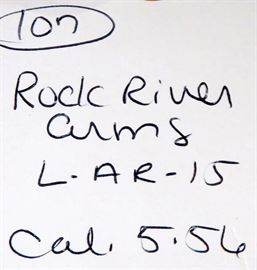 107
Rock River
Arms
L-AR-15
Cal. 5.56